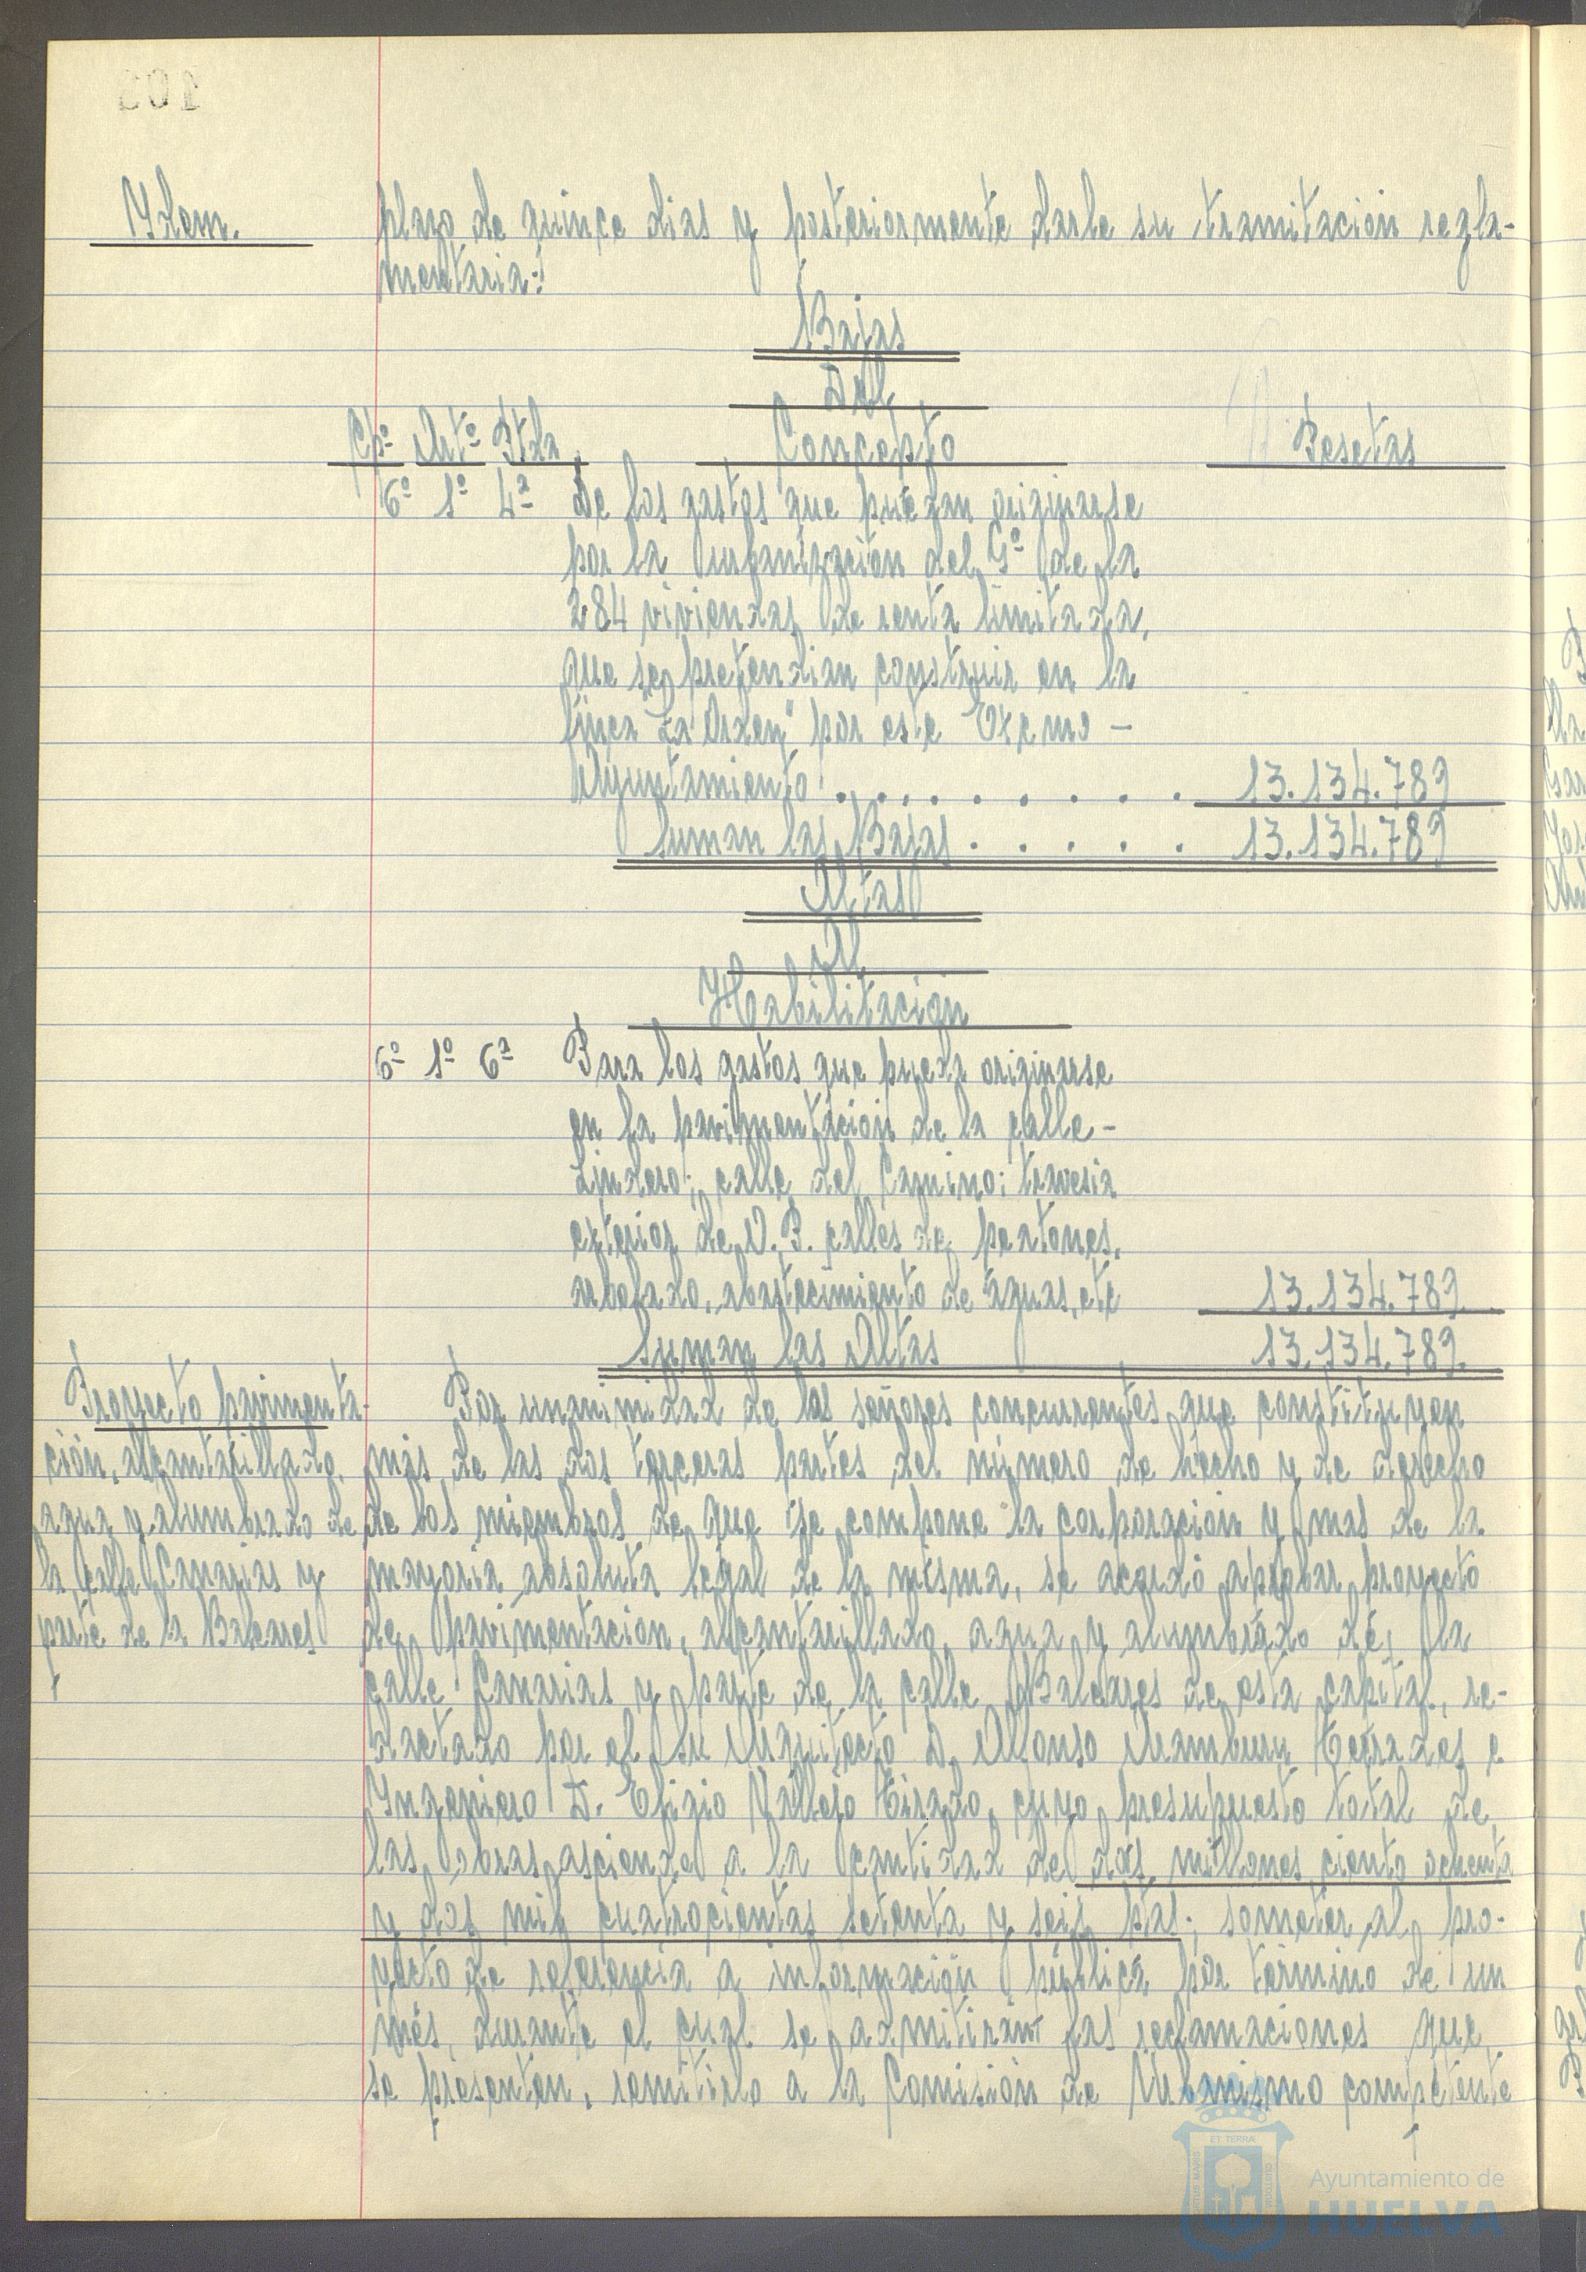 Ydem.
plazo de quince dias y posteriormente darle su tramitación regla-
mentaria:
Bajas
Del
Cpº Artº Ptda Concepto Pesetas
6º 1º 4ª De los gastos que puedan originarse
por la urbanización del Gº de la
284 viviendas de renta limitada,
que se pretendian construir en la
finca "La Orden" por este Excmo -
Ayuntamiento . . . . . . . . 13.134.789
Suman las Bajas . . . . . 13.134.789
Altas
Al
Habilitación
6º 1º 6ª Para los gastos que pueda originarse
en la pavimentación de la calle -
Lindero; calle del Camino; travesia
exterior de V. P. calles de peatones,
arbolado, abastecimiento de aguas, etc 13.134.789
Suman las Altas 13.134.789.
Proyecto pavimenta-
ción, alcantarillado,
agua y alumbrado de
la calle Canarias y
parte de la Baleares
Por unanimidad de los señores concurrentes que constituyen
más de las dos terceras partes del número de hecho y de derecho
de los miembros de que se compone la corporación y mas de la
mayoria absoluta legal de la misma, se acordó aprobar proyecto
de pavimentación, alcantarillado, agua y alumbrado de la
calle Canarias y parte de la calle Baleares de esta capital, re-
dactado por el Sr Arquitecto D. Alfonso Aramburu Terrades e
Ingeniero D. Eligio Vallejo Tirado, cuyo presupuesto total de
las obras asciende a la cantidad de dos millones ciento ochenta
y dos mil cuatrocientas setenta y seis ptas; someter al pro-
yecto de referencia a información pública por término de un
mes, durante el cual se admitirán las reclamaciones que
se presenten, remitirlo a la Comisión de Urbanismo competente
ET TERRA
Ayuntamiento de
HUELVA